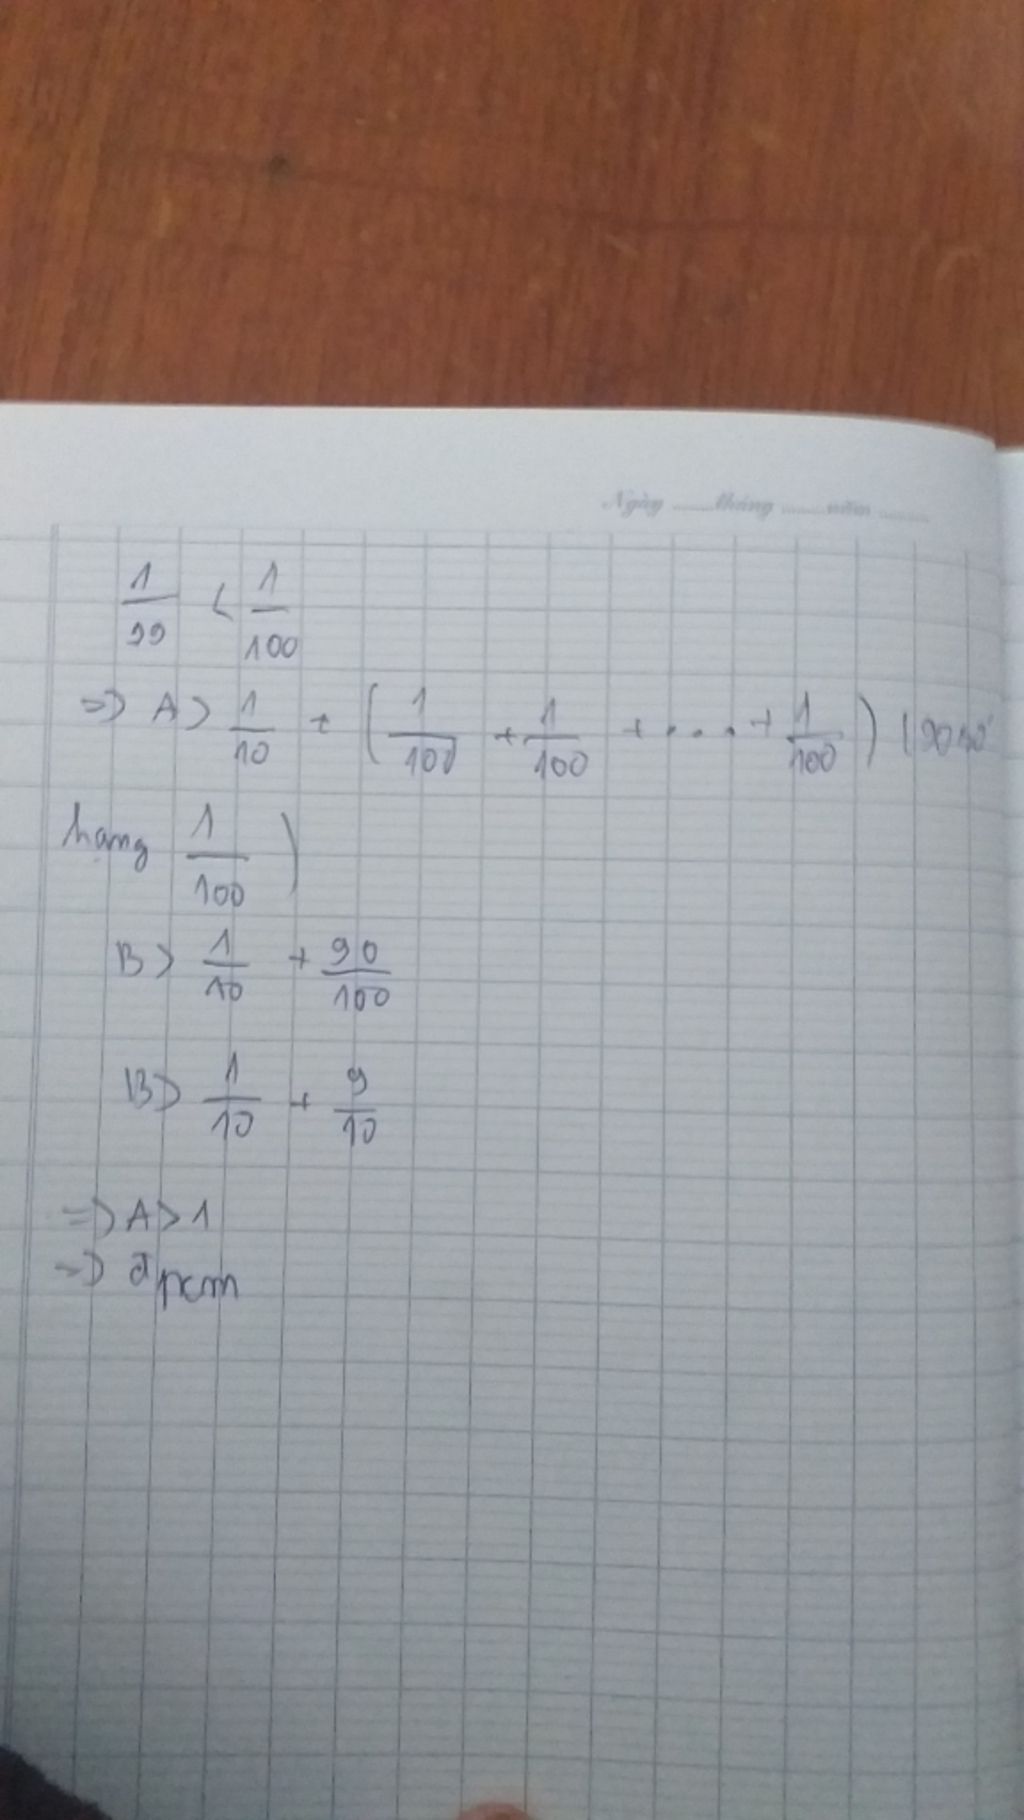 Ngày ........ tháng ........ năm ........
1/99 < 1/100
=> A > 1/10 + (1/100 + 1/100 + ... + 1/100) (90 số
hạng 1/100)
B > 1/10 + 90/100
B > 1/10 + 9/10
=> A > 1
=> đpcm